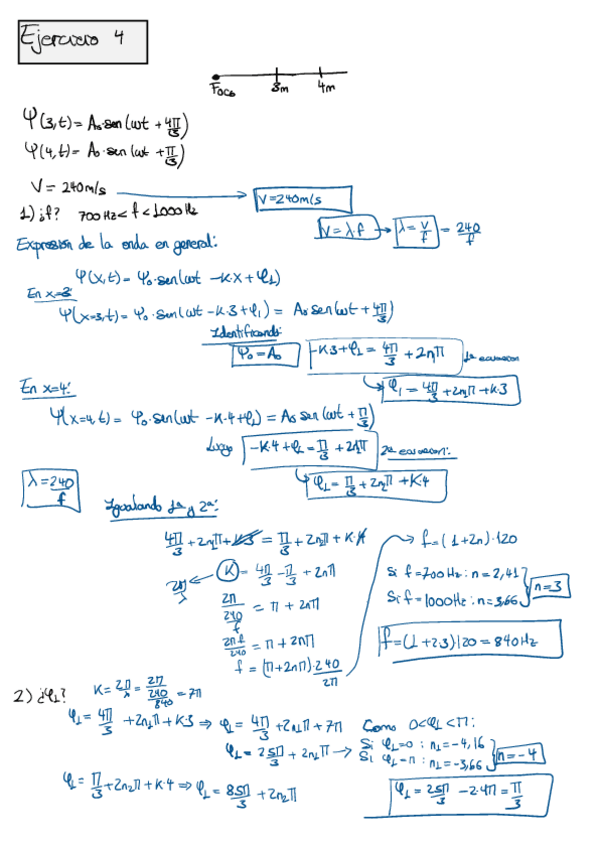 Ejercicio 4
Foco 3m 4m
Ψ(3,t) = A₀·sen(ωt + 4π/3)
Ψ(4,t) = A₀·sen(ωt + π/3)
V = 240m/s → V = 240m/s
1) ¿f? 700 Hz < f < 1000 Hz
V = λ·f → λ = V/f = 240/f
Expresión de la onda en general:
Ψ(x,t) = Ψ₀·sen(ωt - K·X + φ₁)
En x=3:
Ψ(x=3,t) = Ψ₀·sen(ωt - K·3 + φ₁) = A₀ sen(ωt + 4π/3)
Identificando:
Ψ₀ = A₀ -K·3 + φ₁ = 4π/3 + 2n₁π 1ª ecuacion
φ₁ = 4π/3 + 2n₁π + K·3
En x=4:
Ψ(x=4,t) = Ψ₀·sen(ωt - K·4 + φ₁) = A₀ sen(ωt + π/3)
Luego -K·4 + φ₁ = π/3 + 2n₂π 2ª ecuacion:
φ₁ = π/3 + 2n₂π + K·4
λ = 240/f
Igualando 1ª y 2ª:
4π/3 + 2n₁π + K·3 = π/3 + 2n₂π + K·4
2π/λ ← K = 4π/3 - π/3 + 2nπ
2π/(240/f) = π + 2nπ
2πf/240 = π + 2nπ
f = (π + 2nπ)·240/2π
→ f = (1 + 2n)·120
Si f = 700 Hz : n = 2,41
Si f = 1000 Hz : n = 3,66
n = 3
f = (1 + 2·3)120 = 840 Hz
2) ¿φ₁? K = 2π/λ = 2π/(240/840) = 7π
φ₁ = 4π/3 + 2n₁π + K·3 ⇒ φ₁ = 4π/3 + 2n₁π + 7π Como 0<φ₁<π:
φ₁ = 25π/3 + 2n₁π → Si φ₁=0 : n₁=-4,16
Si φ₁=π : n₁=-3,66
n = -4
φ₁ = π/3 + 2n₂π + K·4 ⇒ φ₁ = 85π/3 + 2n₂π
φ₁ = 25π/3 - 2·4π = π/3